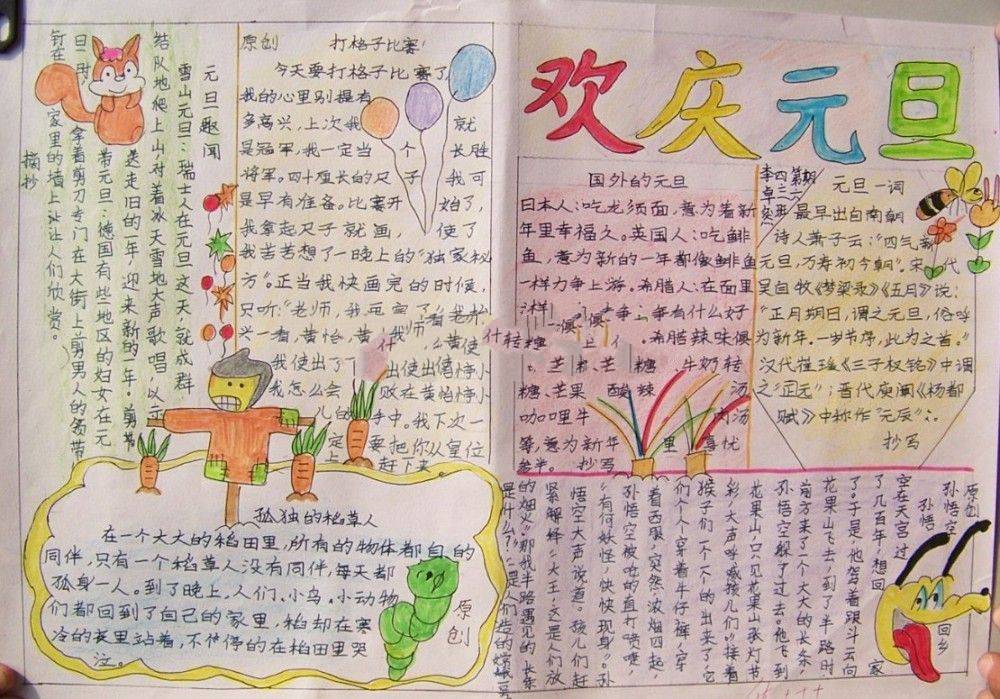 欢庆元旦
国外的元旦
日本人:吃龙须面,意为着新
年里幸福久。英国人:吃鲱
鱼,意为新的一年都像鲱鱼
一样力争上游。希腊人:在面里
希腊辣味俱
糖、牛奶转
糖、芒果 酸辣 汤
咖哩牛 肉汤
等,意为新年 里 喜忧
参半。 抄写
元旦一词
最早出自南朝
诗人萧子云:“四气新
元旦,万寿初今朝”。宋 代
吴自牧《梦粱录》《五月》说:
“正月朔日,谓之元旦,俗呼
为新年。一岁节序,此为之首。”
汉代崔瑗《三子钗铭》中谓
之“正元”;晋代庾阐《杨都
赋》中称作“元辰”:.
抄写
原创 打格子比赛
今天要打格子比赛了,
我的心里别提有
多高兴,上次我 就
是冠军,我一定当 个 长胜
将军。四十厘长的尺 子 我可
是早有准备。比赛开 始了,
我拿起尺子就画, 使了
我苦苦想了一晚上的“独家秘
方”。正当我快画完的时候,
只听“老师,我画完了”
兴一看,黄怡
我使出了
我怎么会 败在黄怡
手中。我下次一
定 要把你从皇位
赶下来。
元旦趣闻
雪山元旦:瑞士人在元旦这天,就成群
结队地爬上山,对着冰天雪地大声歌唱,以
送走旧的年,迎来新的一年。剪
带元旦:德国有些地区的妇女在元
旦时 拿着剪刀专门在大街上剪男人的领带
钉在 家里的墙上让让人们欣赏。
摘抄
孤独的稻草人
在一个大大的稻田里,所有的物体都自的
同伴,只有一个稻草人没有同伴,每天都
孤身一人。到了晚上,人们、小鸟、小动物
们都回到了自己的家里,稻却在寒
冷的夜里站着,不停停的在稻田里哭
泣。
原创
原创
孙悟空 回乡
孙悟
空在天宫过
了几百年,想回 家
了。于是,他驾着跟斗云向
花果山飞去,到了半路时
前方来了一个大大的长条,
孙悟空躲了了过去。他飞到
花果山,只见花果山张灯节
彩,大声呼喊孩儿们。”接着
猴子们一个个的出来了,它
们个个穿着牛仔裤,穿
着西服,突然,浓烟四起,
孙悟空被呛的直打喷嚏,
“有何妖怪,快快现身。”孙
悟空大声说道。孩儿们赶
紧解释:“大王,这是人们放
的烟火。”“那我半路遇见的长条
是什么?”“是人们造的嫦娥一号